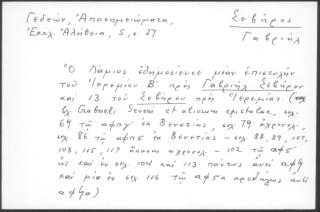 Γεδεών, Ἀποσημειώματα,
Ἐκκλ. Ἀλήθεια, 5, σ 27
Σεβῆρος
Γαβριήλ
Ὁ Λάμιος ἐδημοσίευσε μίαν ἐπιστολὴν
τοῦ Ἱερεμίου Β΄ πρὸ Γαβριὴλ Σεβῆρον
καὶ 13 τοῦ Σεβήρου πρὸ Ἱερεμίαν (
βλ. Gabrieli Severi et aliorum epistolae, σελ.
69 τῷ αφπγ ἐκ Βενετίας, σελ 79 ἀχρονολ.
σελ 86 τῷ αφπε ἐκ Βενετίας - σελ. 88, 89, 107,
108, 115, 117 ἅπασαι ἀχρονολ - 102 τῷ αφπ
ὡς καὶ ἐν σελ. 104 καὶ 113 πάντως ἀντὶ αφϟ
καὶ μία ἐν σελ. 116 τῷ αφπα προδήλως ἀντὶ
αφϟα)